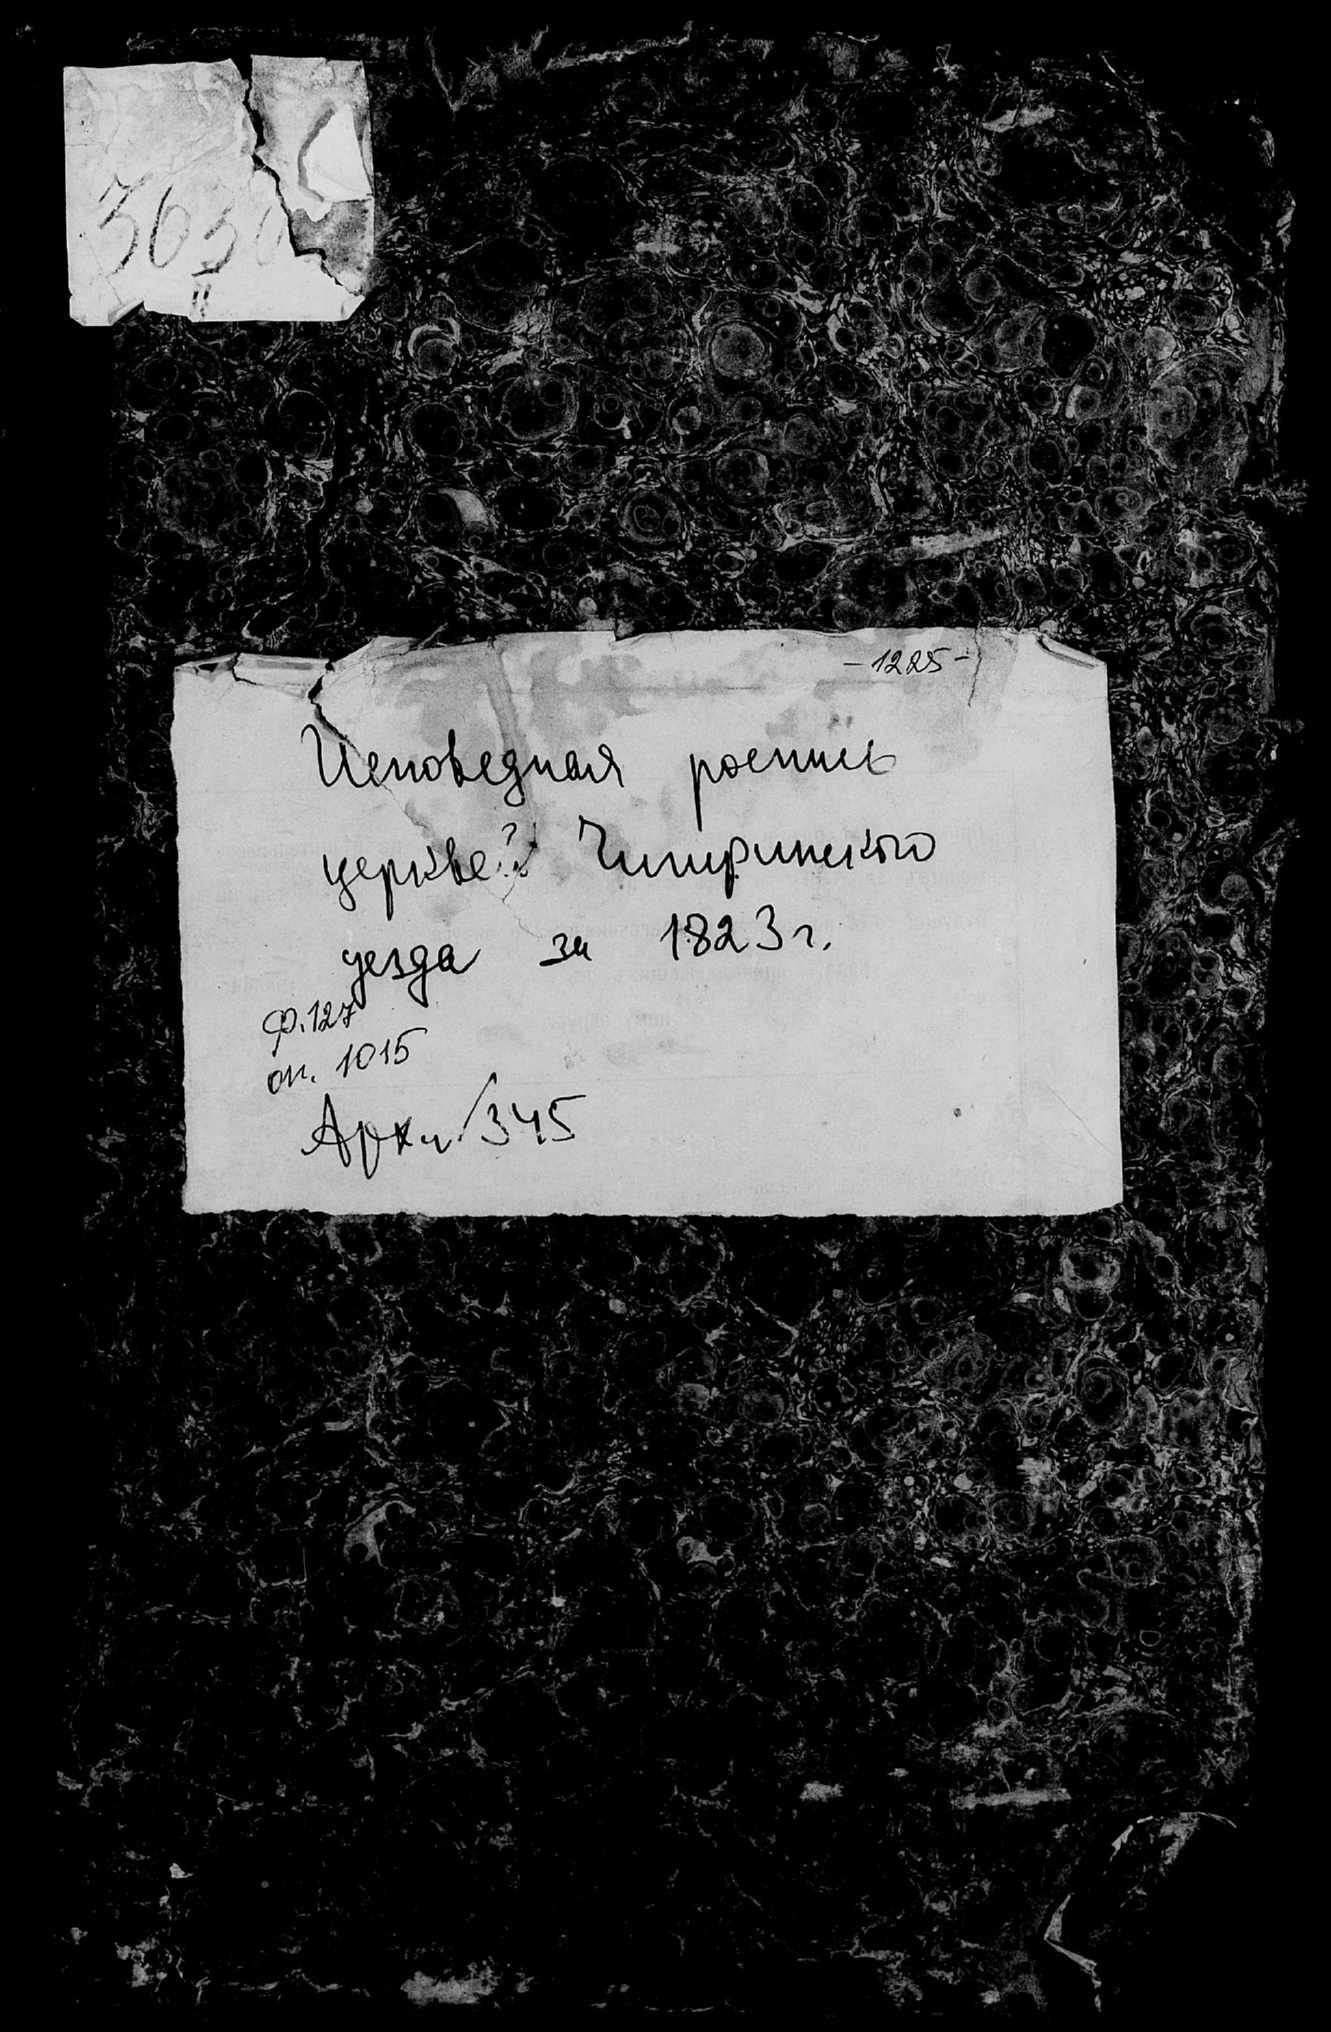 3630
-1225-
Исповедная роспись
церквей Чигиринского
уезда за 1823 г.
Ф. 127
оп. 1015
Арх. 345